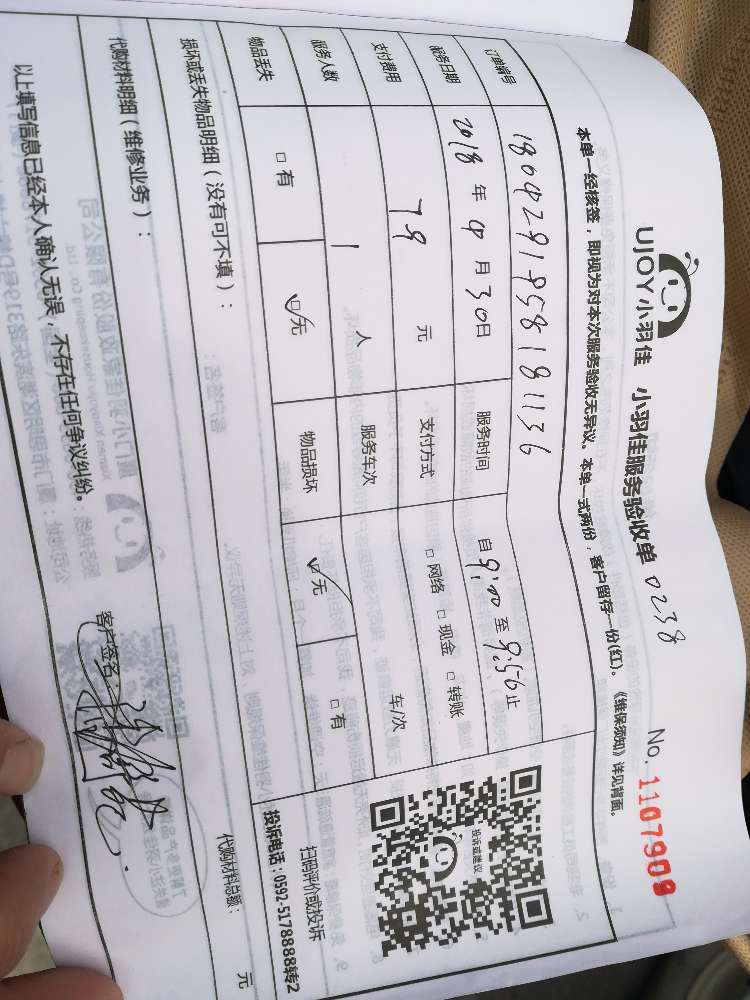 UJOY小羽佳 小羽佳服务验收单 0238
No. 1107909
本单一经核签，即视为对本次服务验收无异议。本单一式两份，客户留存一份(红)。《维保须知》详见背面。
订单编号 180429185818 1136
服务日期 2018年4月30日 服务时间 自9:00至9:56止
支付费用 79元 支付方式 □网络 □现金 □转账
服务人数 1人 服务车次 车/次
物品丢失 □有 ☑无 物品损坏 ☑无 □有
投诉或建议
扫码评价或投诉
投诉电话：0592-5178888转2
损坏或丢失物品明细（没有可不填）：
代购材料明细（维修业务）： 代购材料总额： 元
以上填写信息已经本人确认无误，不存在任何争议纠纷。 客户签名：